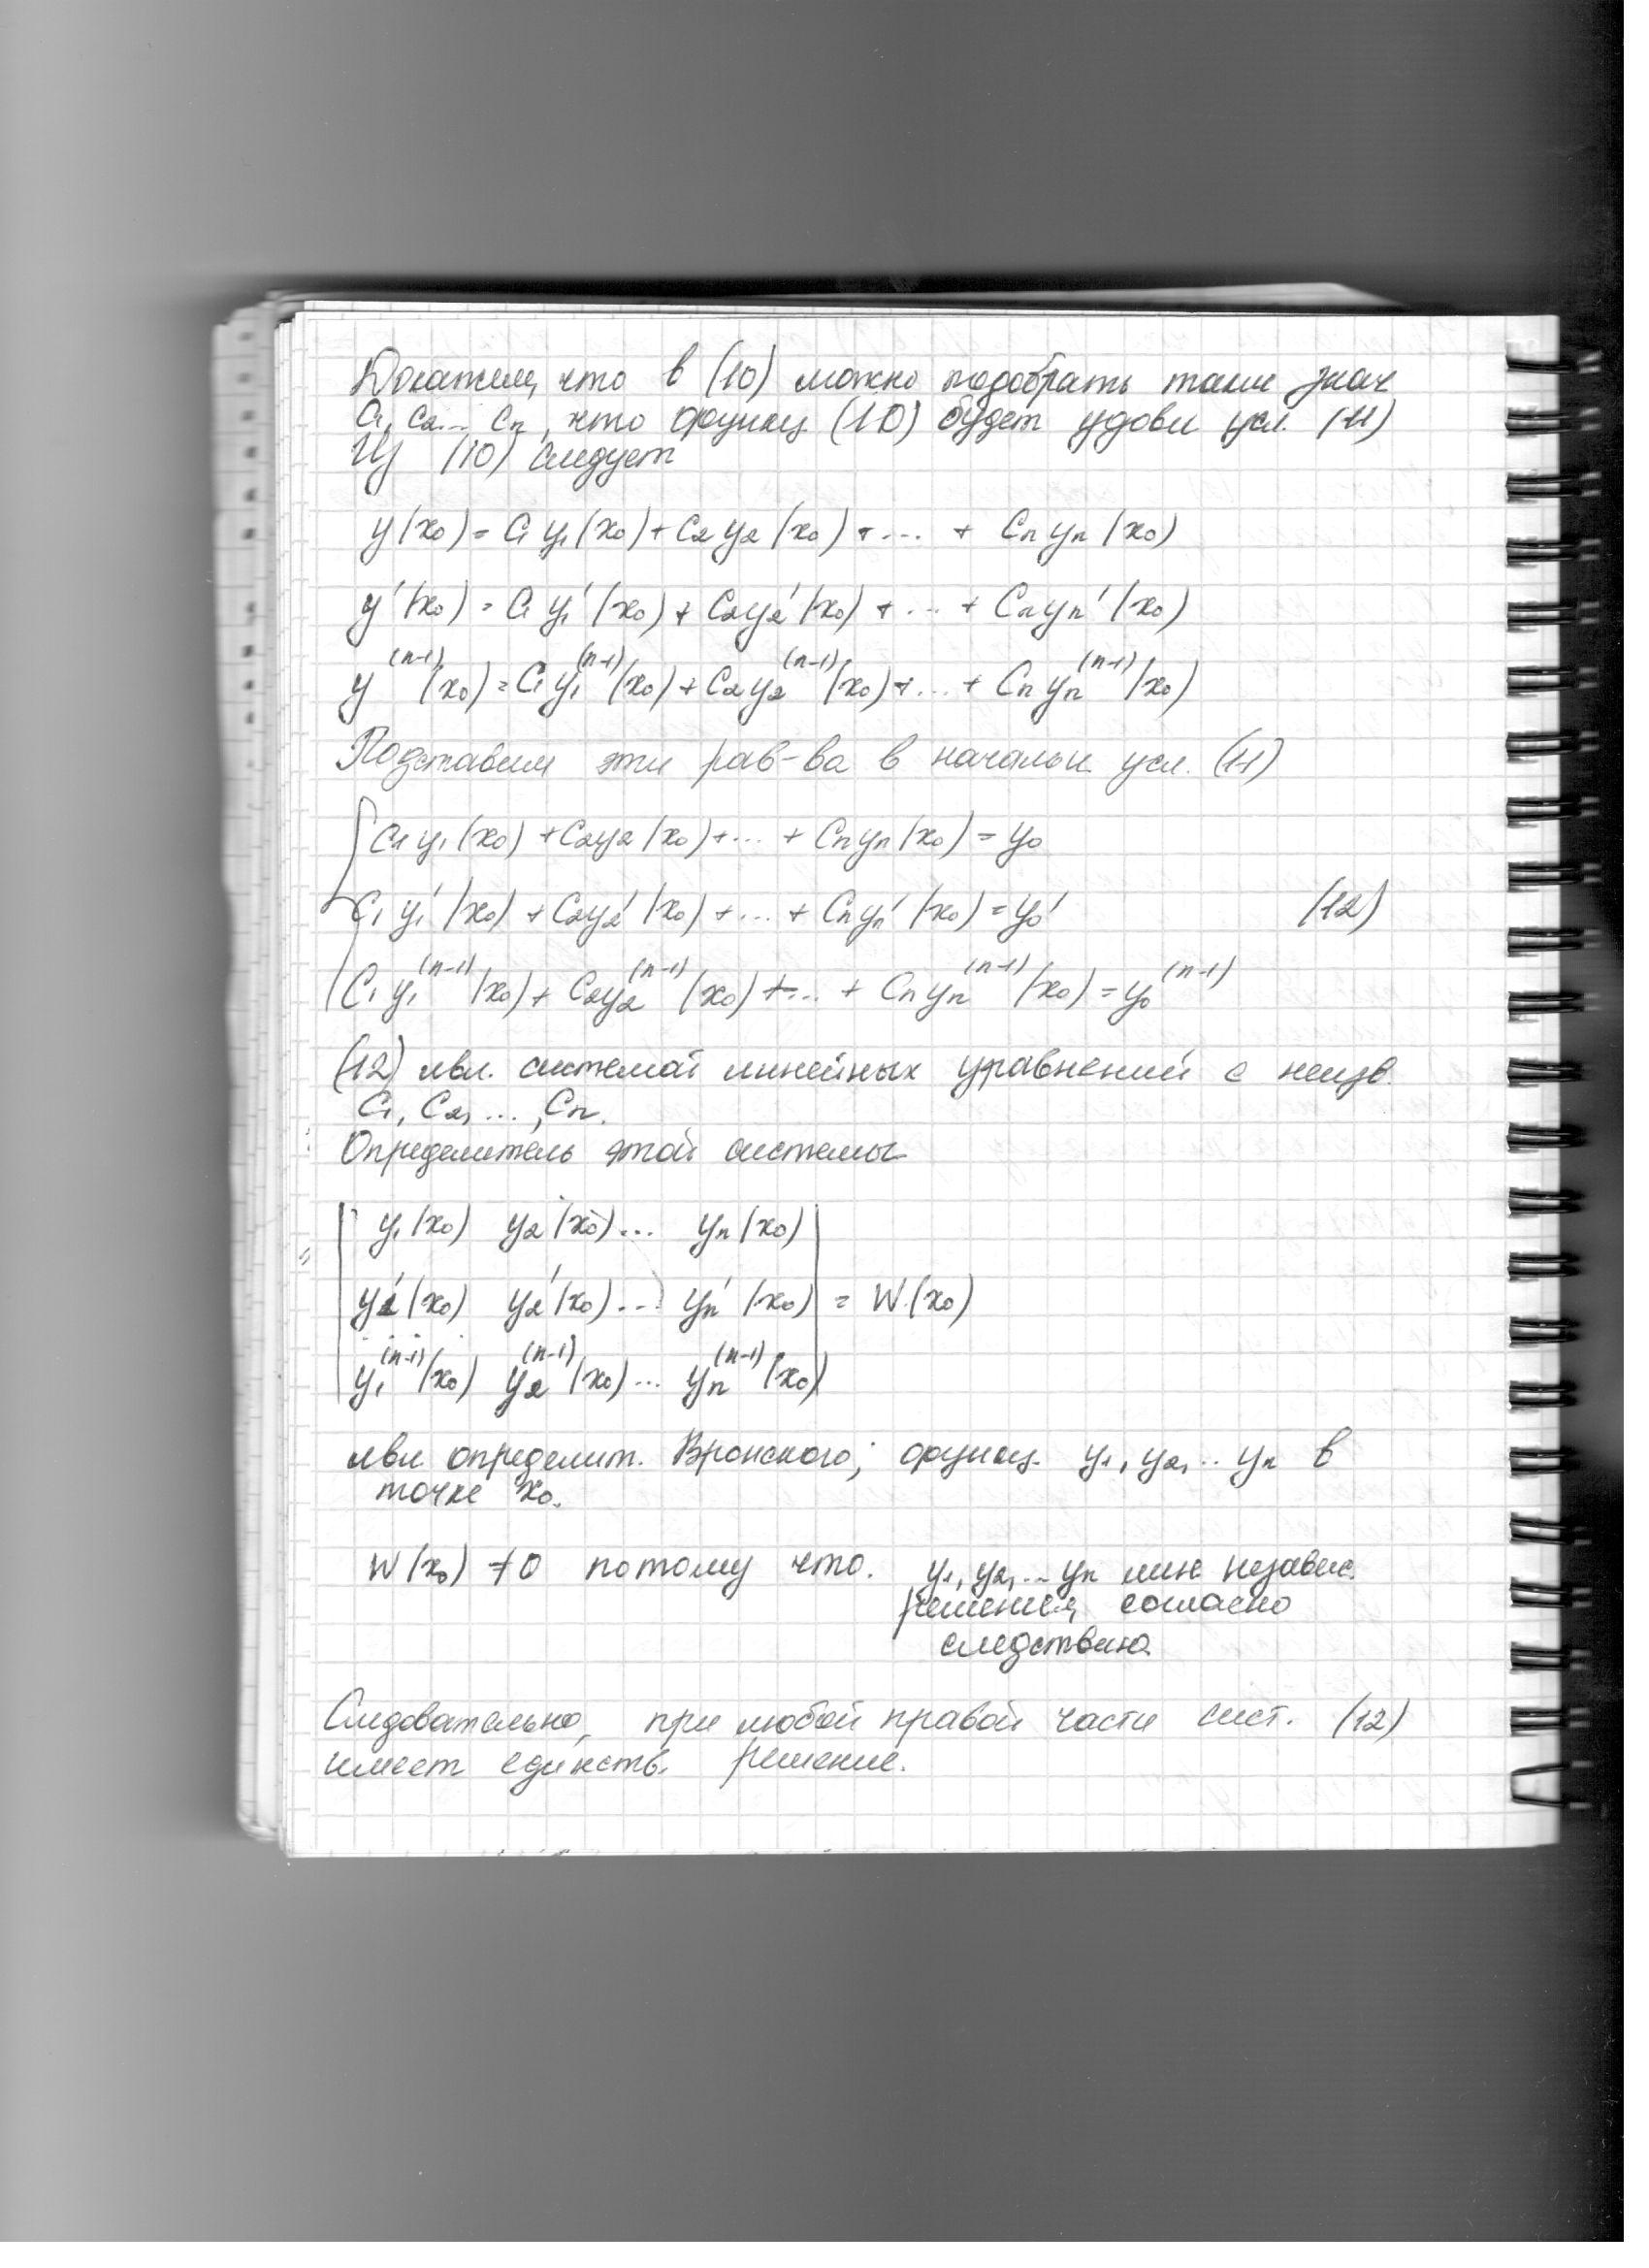 Докажем, что в (10) можно подобрать такие знач
C₁, C₂... Cₙ, что функц (10) будет удовл усл. (11)
Из (10) следует
y(x₀) = C₁y₁(x₀) + C₂y₂(x₀) + ... + Cₙyₙ(x₀)
y'(x₀) = C₁y₁'(x₀) + C₂y₂'(x₀) + ... + Cₙyₙ'(x₀)
y⁽ⁿ⁻¹⁾(x₀) = C₁y₁⁽ⁿ⁻¹⁾(x₀) + C₂y₂⁽ⁿ⁻¹⁾(x₀) + ... + Cₙyₙ⁽ⁿ⁻¹⁾(x₀)
Подставим эти рав-ва в начальн усл. (11)
C₁y₁(x₀) + C₂y₂(x₀) + ... + Cₙyₙ(x₀) = y₀
C₁y₁'(x₀) + C₂y₂'(x₀) + ... + Cₙyₙ'(x₀) = y₀' (12)
C₁y₁⁽ⁿ⁻¹⁾(x₀) + C₂y₂⁽ⁿ⁻¹⁾(x₀) + ... + Cₙyₙ⁽ⁿ⁻¹⁾(x₀) = y₀⁽ⁿ⁻¹⁾
(12) явл. системой линейных уравнений с неизв.
C₁, C₂, ..., Cₙ.
Определитель этой системы
y₁(x₀) y₂(x₀) ... yₙ(x₀)
y₁'(x₀) y₂'(x₀) ... yₙ'(x₀) = W(x₀)
y₁⁽ⁿ⁻¹⁾(x₀) y₂⁽ⁿ⁻¹⁾(x₀) ... yₙ⁽ⁿ⁻¹⁾(x₀)
явл определит. Вронского; функц. y₁, y₂, .. yₙ в
точке x₀.
W(x₀) ≠ 0 потому что. y₁, y₂, ... yₙ лин независ.
решения, согласно
следствию
Следовательно, при любой правой части сист. (12)
имеет единств. решение.